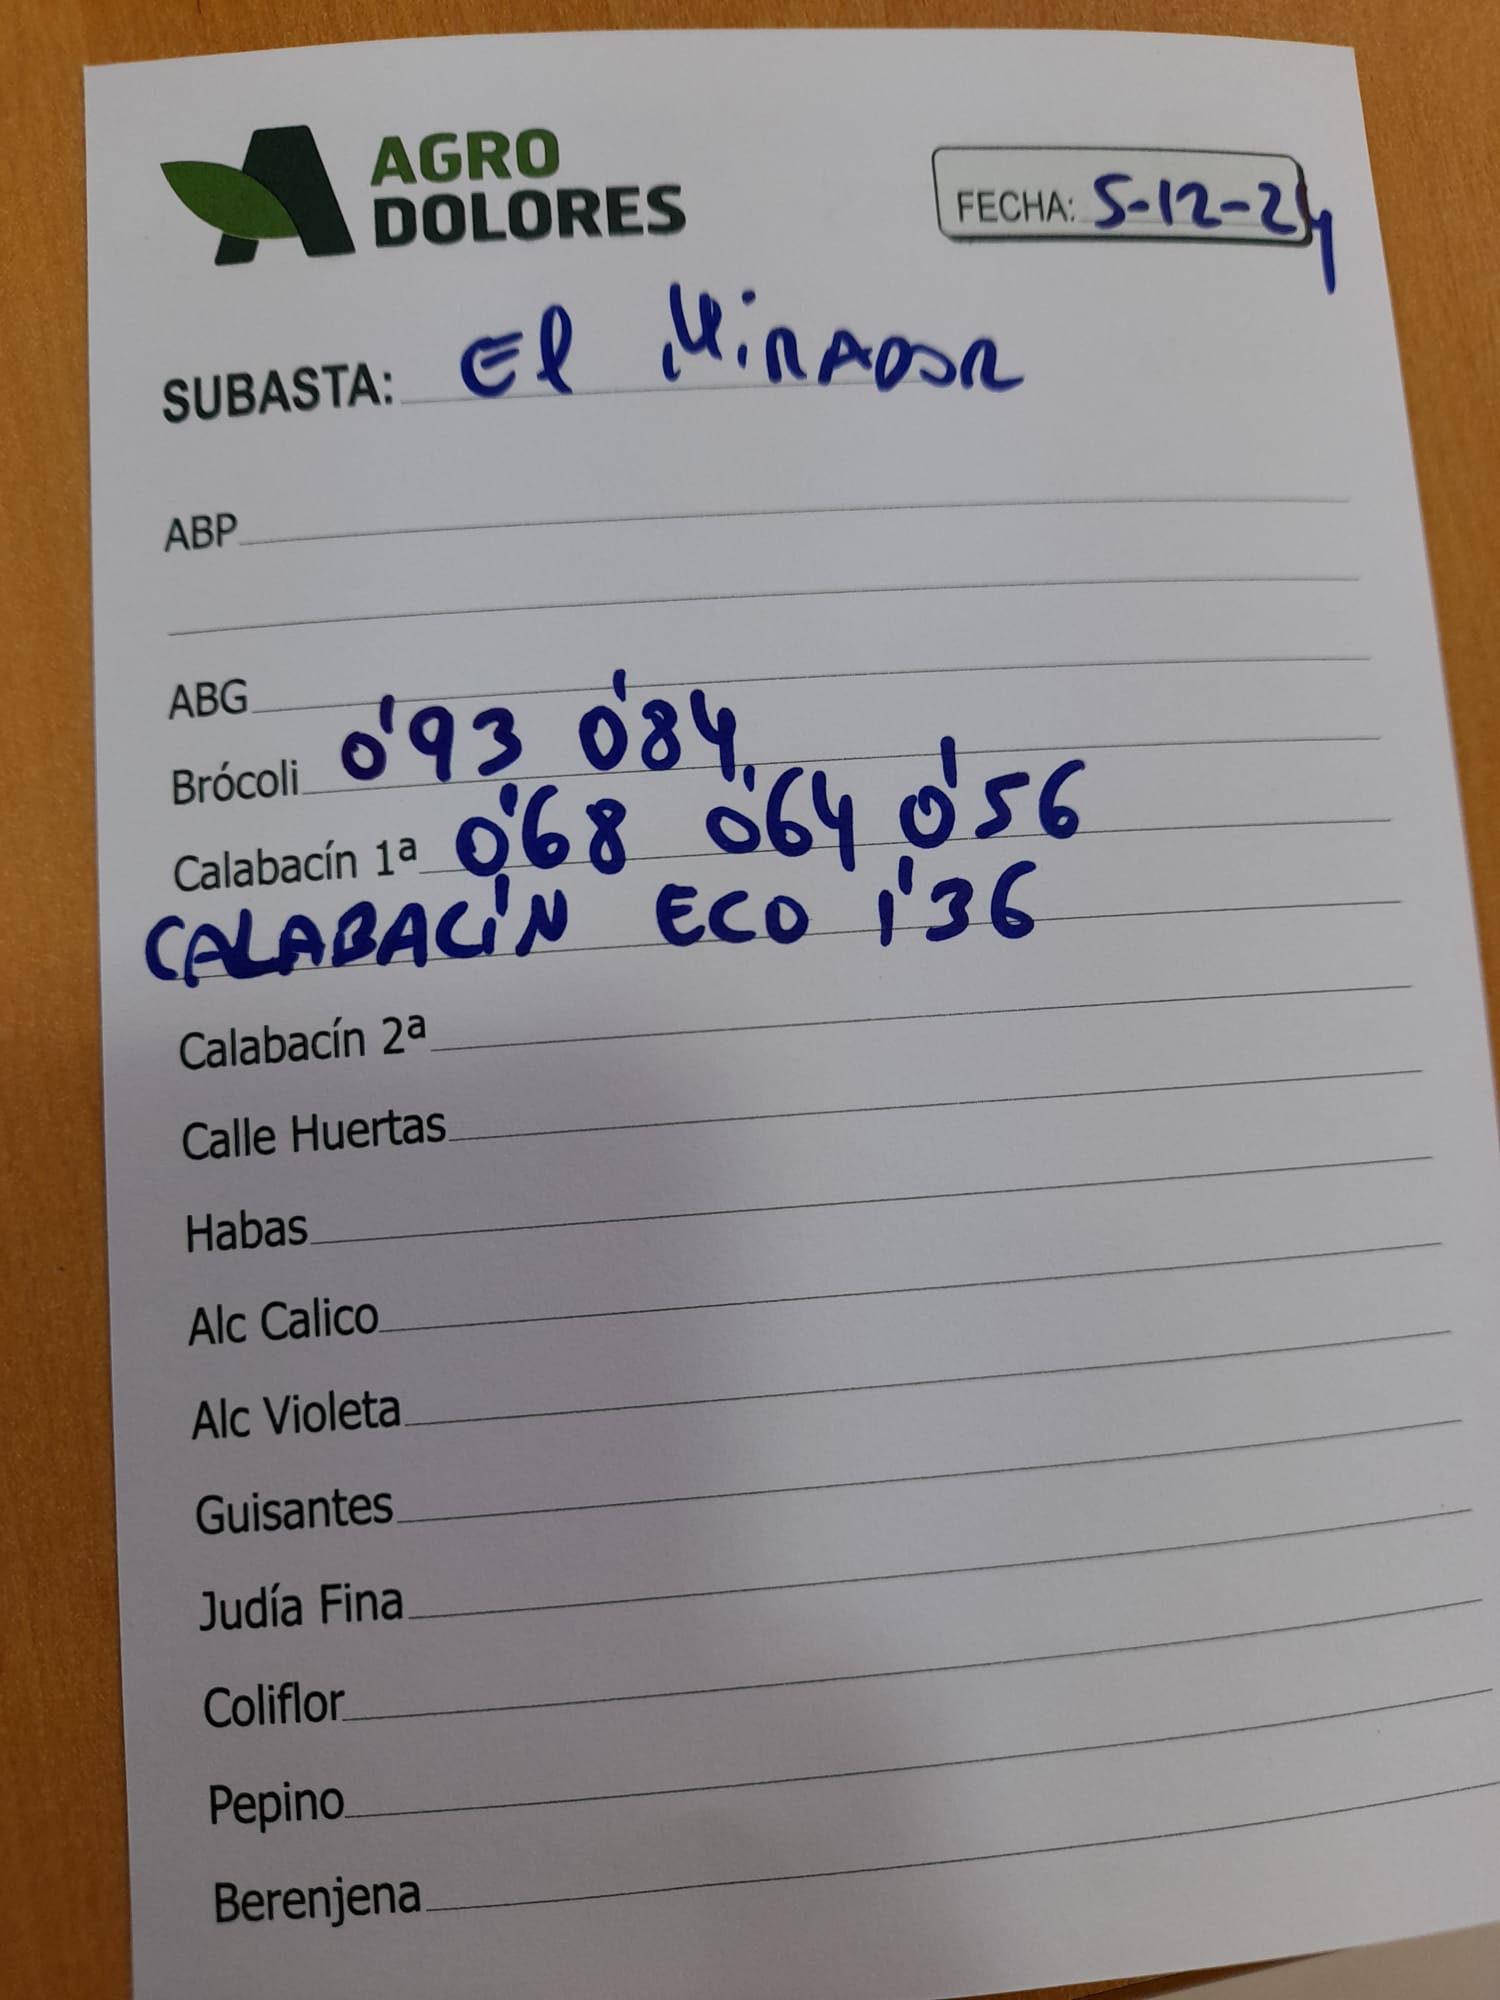 AGRO
DOLORES
FECHA: 5-12-24
SUBASTA: El MiRADOR
ABP
ABG
Brócoli 0'93 0'84
Calabacín 1ª 0'68 0'64 0'56
CALABACÍN ECO 1'36
Calabacín 2ª
Calle Huertas
Habas
Alc Calico
Alc Violeta
Guisantes
Judía Fina
Coliflor
Pepino
Berenjena